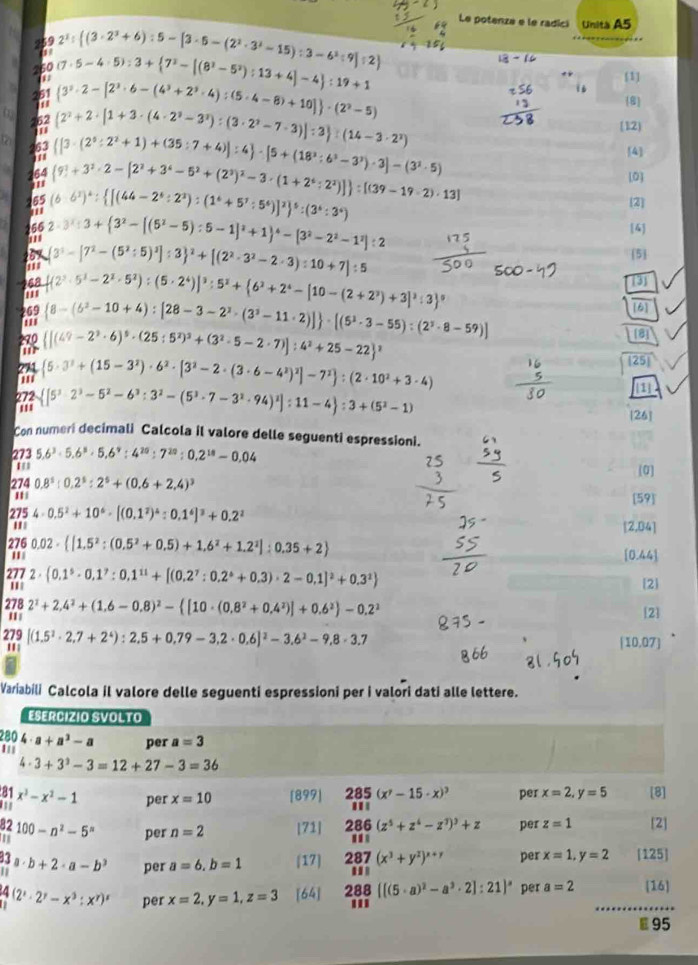 Le potenze e le radici Unità A5
259 2² : {(3 · 2³ + 6) : 5 − [3 · 5 − (2² · 3² − 15) : 3 − 6² : 9] : 2}
260 (7 · 5 − 4 · 5) : 3 + {7² − [(8² − 5²) : 13 + 4] − 4} : 19 + 1 [1]
261 {3² · 2 − [2³ · 6 − (4³ + 2³ · 4) : (5 · 4 − 8) + 10]} · (2³ − 5) [8]
262 {2² + 2 · [1 + 3 · (4 · 2³ − 3³) : (3 · 2³ − 7 · 3)] : 3} : (14 − 3 · 2²) [12]
263 {[3 · (2⁶ : 2² + 1) + (35 : 7 + 4)] : 4} · [5 + (18³ : 6³ − 3²) · 3] − (3² · 5) [4]
264 {9² + 3² · 2 − [2² + 3⁴ − 5² + (2³)² − 3 · (1 + 2⁶ : 2²)]} : [(39 − 19 · 2) · 13] [0]
265 (6 · 6²)⁴ : {[(44 − 2⁴ : 2²) : (1⁶ + 5⁷ : 5⁶)]²}⁵ : (3⁶ : 3⁴) [2]
266 2 · 3² : 3 + {3² − [(5² − 5) : 5 − 1]² + 1}⁴ − [3² − 2² − 1²] : 2 [4]
267 {3³ − [7² − (5² : 5)²] : 3}² + [(2² · 3² − 2 · 3) : 10 + 7] : 5 [5]
268 {(2³ · 5³ − 2² · 5²) : (5 · 2⁴)]³ : 5² + {6² + 2⁴ − [10 − (2 + 2³) + 3]² : 3}⁰ [3]
269 {8 − (6² − 10 + 4) : [28 − 3 − 2² · (3³ − 11 · 2)]} · [(5² · 3 − 55) : (2³ · 8 − 59)] [6]
270 {[(49 − 2³ · 6)⁵ · (25 : 5²)³ + (3² · 5 − 2 · 7)] : 4² + 25 − 22}² [8]
271 {5 · 3² + (15 − 3²) · 6² · [3² − 2 · (3 · 6 − 4²)²] − 7²} : (2 · 10² + 3 · 4) [25]
272 {[5² · 2³ − 5² − 6³ : 3² − (5² · 7 − 3² · 94)²] : 11 − 4} : 3 + (5² − 1) [1]
[26]
Con numeri decimali Calcola il valore delle seguenti espressioni.
273 5,6³ · 5,6⁸ · 5,6⁹ : 4²⁰ : 7²⁰ : 0,2¹⁸ − 0,04 [0]
274 0,8⁵ : 0,2⁵ : 2⁵ + (0,6 + 2,4)³ [59]
275 4 · 0,5² + 10⁶ · [(0,1²)⁴ : 0,1⁶]³ + 0,2² [2,04]
276 0,02 · {[1,5² : (0,5² + 0,5) + 1,6² + 1,2²] : 0,35 + 2} [0,44]
277 2 · {0,1⁵ · 0,1⁷ : 0,1¹¹ + [(0,2⁷ : 0,2⁶ + 0,3) · 2 − 0,1]² + 0,3²} [2]
278 2² + 2,4² + (1,6 − 0,8)² − {[10 · (0,8² + 0,4²)] + 0,6²} − 0,2² [2]
279 [(1,5² · 2,7 + 2⁴) : 2,5 + 0,79 − 3,2 · 0,6]² − 3,6² − 9,8 · 3,7 [10,07]
15 64
16 4
64 256
18 − 16
16
256
258
125
4
500
500 − 49
16
5
80
25
3
75
64
59
5
75 −
55
20
875 −
866
81.409
Variabili Calcola il valore delle seguenti espressioni per i valori dati alle lettere.
ESERCIZIO SVOLTO
280 4 · a + a³ − a per a = 3
4 · 3 + 3³ − 3 = 12 + 27 − 3 = 36
281 x³ − x² − 1 per x = 10 [899]
82 100 − n² − 5ⁿ per n = 2 [71]
83 a · b + 2 · a − b³ per a = 6, b = 1 [17]
84 (2ˣ · 2ʸ − x³ : xʸ)ᶻ per x = 2, y = 1, z = 3 [64]
285 (xʸ − 15 · x)³ per x = 2, y = 5 [8]
286 (z⁵ + z⁴ − z³)³ + z per z = 1 [2]
287 (x³ + y²)ˣ⁺ʸ per x = 1, y = 2 [125]
288 {[(5 · a)² − a³ · 2] : 21}ᵃ per a = 2 [16]
E 95